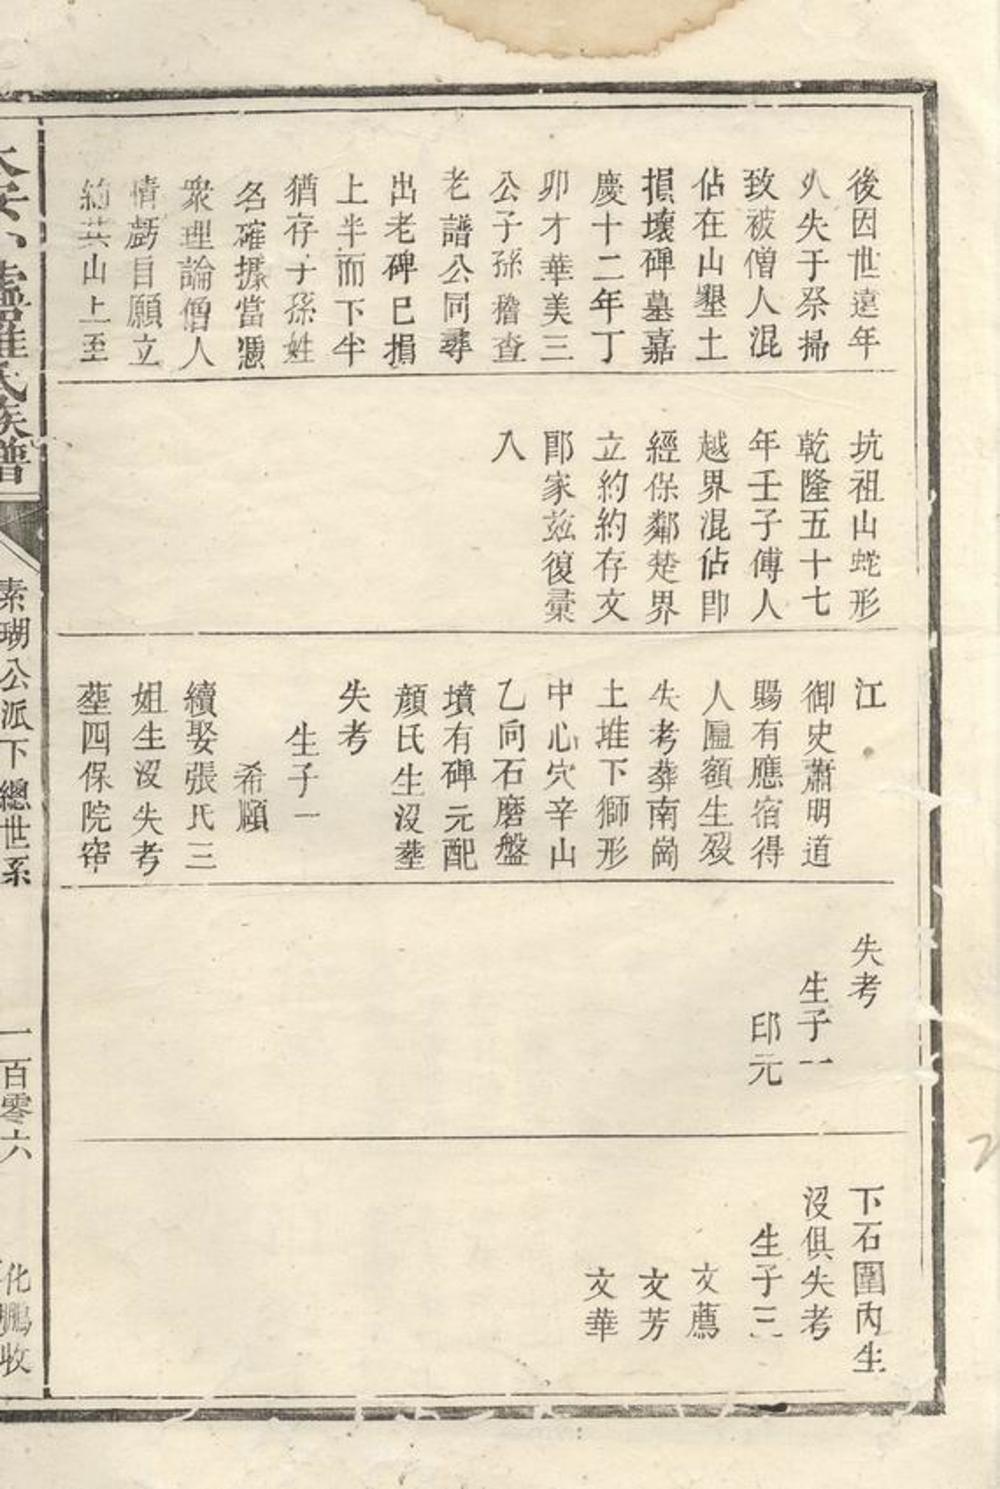 後因世遠年
久失于祭掃
致被僧人混
佔在山墾土
損壞碑墓嘉
慶十二年丁
卯才華美三
公子孫稽查
老譜公同尋
出老碑已損
上半而下半
猶存子孫姓
名確據當憑
衆理論僧人
情虧自願立
約其山上至
坑祖山蛇形
乾隆五十七
年壬子傅人
越界混佔即
經保鄰楚界
立約約存文
郎家茲復彙
入
江
御史蕭明道
賜有應宿得
人匾額生歿
失考葬南崗
土堆下獅形
中心穴辛山
乙向石磨盤
墳有碑元配
顔氏生沒塟
失考
生子一
希願
續娶張氏三
姐生沒失考
塟四保院帘
失考
生子一
印元
下石圍內生
沒俱失考
生子三
文薦
文芳
文華
羅氏族譜
素瑚公派下總世系
一百零六
化鵬收